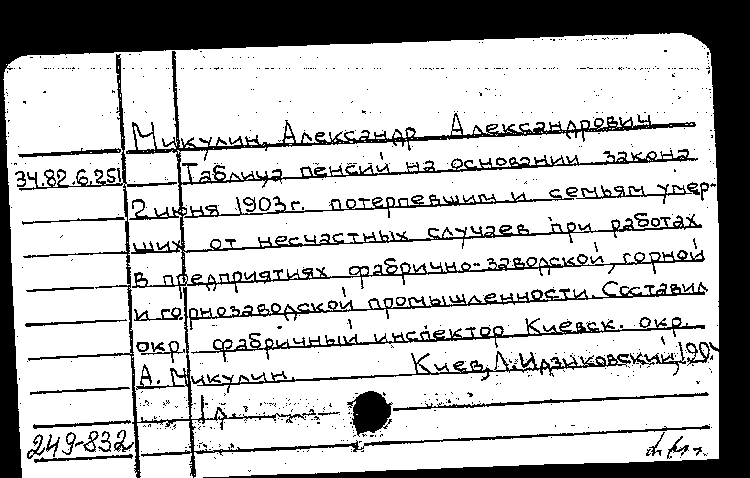 Микулин, Александр Александрович
34.82.6.251 Таблица пенсий на основании закона
2 июня 1903г. потерпевшим и семьям умер-
ших от несчастных случаев при работах
в предприятиях фабрично-заводской, горной
и горнозаводской промышленности. Составил
окр. фабричный инспектор Киевск. окр.
А. Микулин. Киев, Л. Идзиковский,
249-832